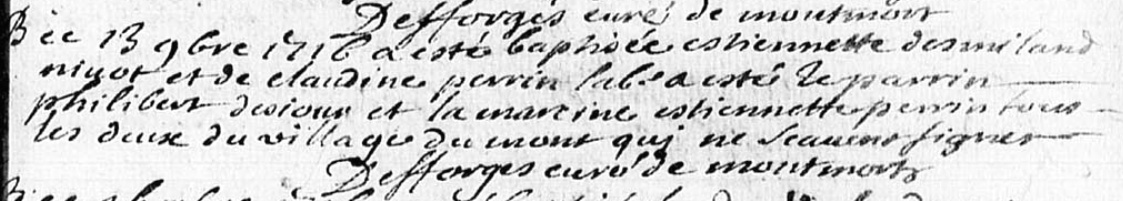 Defforges curé de montmort
B ce 13 9bre 1716 a esté baptisée estiennette des miland
nigot et de claudine perrin lab. a esté le parrin
philibert desjour et la marcine estiennette perrin tous
les deux du village du mont qui ne scavent signer
Defforges curé de montmort